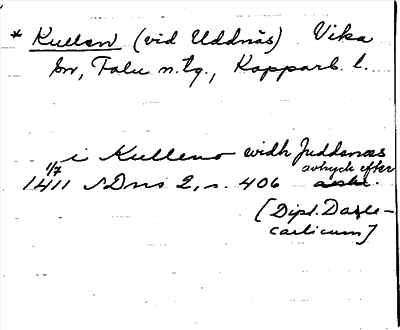 * Kullen (vid Uddnäs) Vika
sn, Falu n. tg., Kopparb. l.
i Kulleno widh Juddenæs
1/7 avtryck efter
1411 SDns 2, s. 406
[Dipl. Dale-
carlicum]